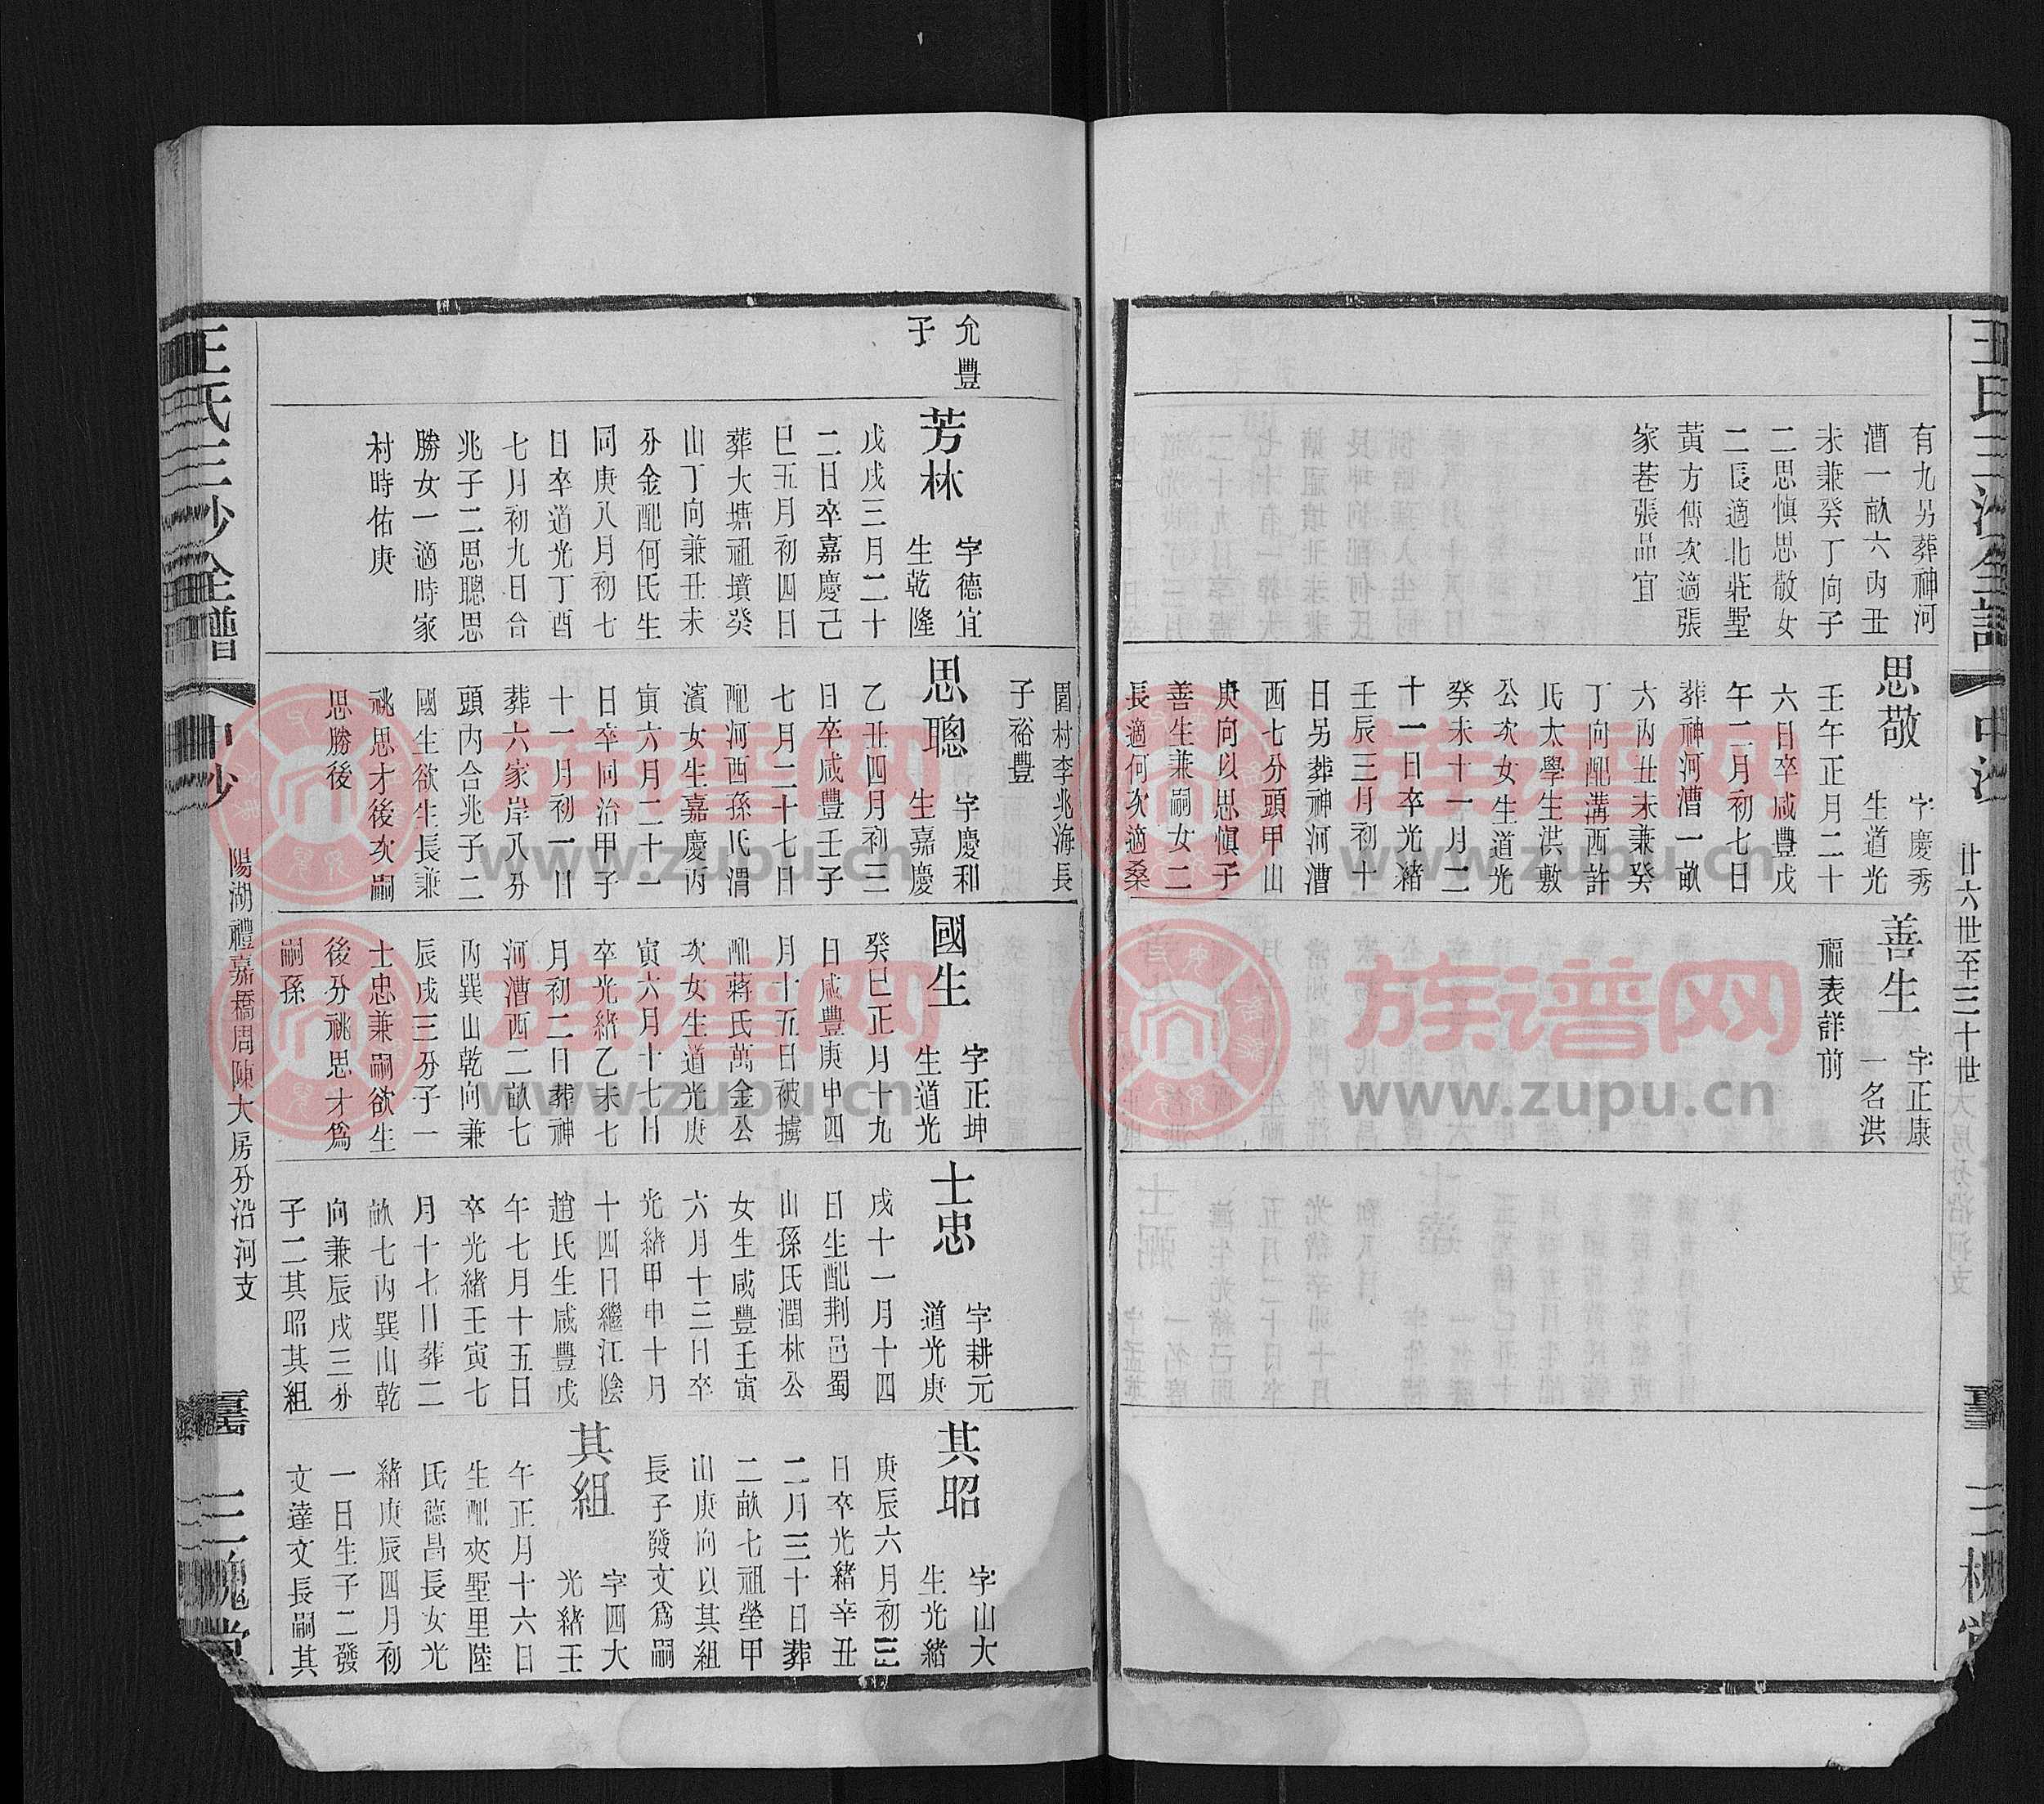 王氏三沙全譜
中沙
廿六世至三十世
三槐堂
有九另葬神河
漕一畝六內丑
未兼癸丁向子
二思慎思敬女
二長適北莊墅
黃方傳次適張
家巷張品宜
思敬
字慶秀
生道光
壬午正月二十
六日卒咸豐戊
午二月初七日
葬神河漕一畝
六內丑未兼癸
丁向配溝西許
氏太學生洪敷
公次女生道光
癸未十一月二
十一日卒光緒
壬辰三月初十
日另葬神河漕
西七分頭甲山
庚向以思慎子
善生兼嗣女二
長適何次適桑
善生
字正康
一名洪
福表詳前
圍村李兆海長
子裕豐
允豐
子
芳林
字德宜
生乾隆
戊戌三月二十
二日卒嘉慶己
巳五月初四日
葬大塘祖墳癸
山丁向兼丑未
分金配何氏生
同庚八月初七
日卒道光丁酉
七月初九日合
兆子二思聰思
勝女一適時家
村時佑庚
思聰
字慶和
生嘉慶
乙丑四月初三
日卒咸豐壬子
七月二十七日
配河西孫氏渭
濱女生嘉慶丙
寅六月二十一
日卒同治甲子
十一月初一日
葬六家岸八分
頭內合兆子二
國生欲生長兼
祧思才後次嗣
思勝後
國生
字正坤
生道光
癸巳正月十九
日咸豐庚申四
月十五日被擄
配蔣氏萬金公
次女生道光庚
寅六月十七日
卒光緒乙未七
月初二日葬神
河漕西二畝七
內巽山乾向兼
辰戌三分子一
士忠兼嗣欲生
後分祧思才爲
嗣孫
士忠
字耕元
道光庚
戌十一月十四
日生配荆邑蜀
山孫氏潤林公
女生咸豐壬寅
六月十三日卒
光緒甲申十月
十四日繼江陰
趙氏生咸豐戊
午七月十五日
卒光緒壬寅七
月十七日葬二
畝七內巽山乾
向兼辰戌三分
子二其昭其組
其昭
字山大
生光緒
庚辰六月初三
日卒光緒辛丑
二月三十日葬
二畝七祖塋甲
山庚向以其組
長子發文爲嗣
其組
字四大
光緒壬
午正月十六日
生配夾墅里陸
氏德昌長女光
緒庚辰四月初
一日生子二發
文達文長嗣其
王氏三沙全譜
中沙
陽湖禮嘉橋周陳大房分沿河支
三槐堂
族谱网
www.zupu.cn
族谱网
www.zupu.cn
族谱网
www.zupu.cn
族谱网
www.zupu.cn